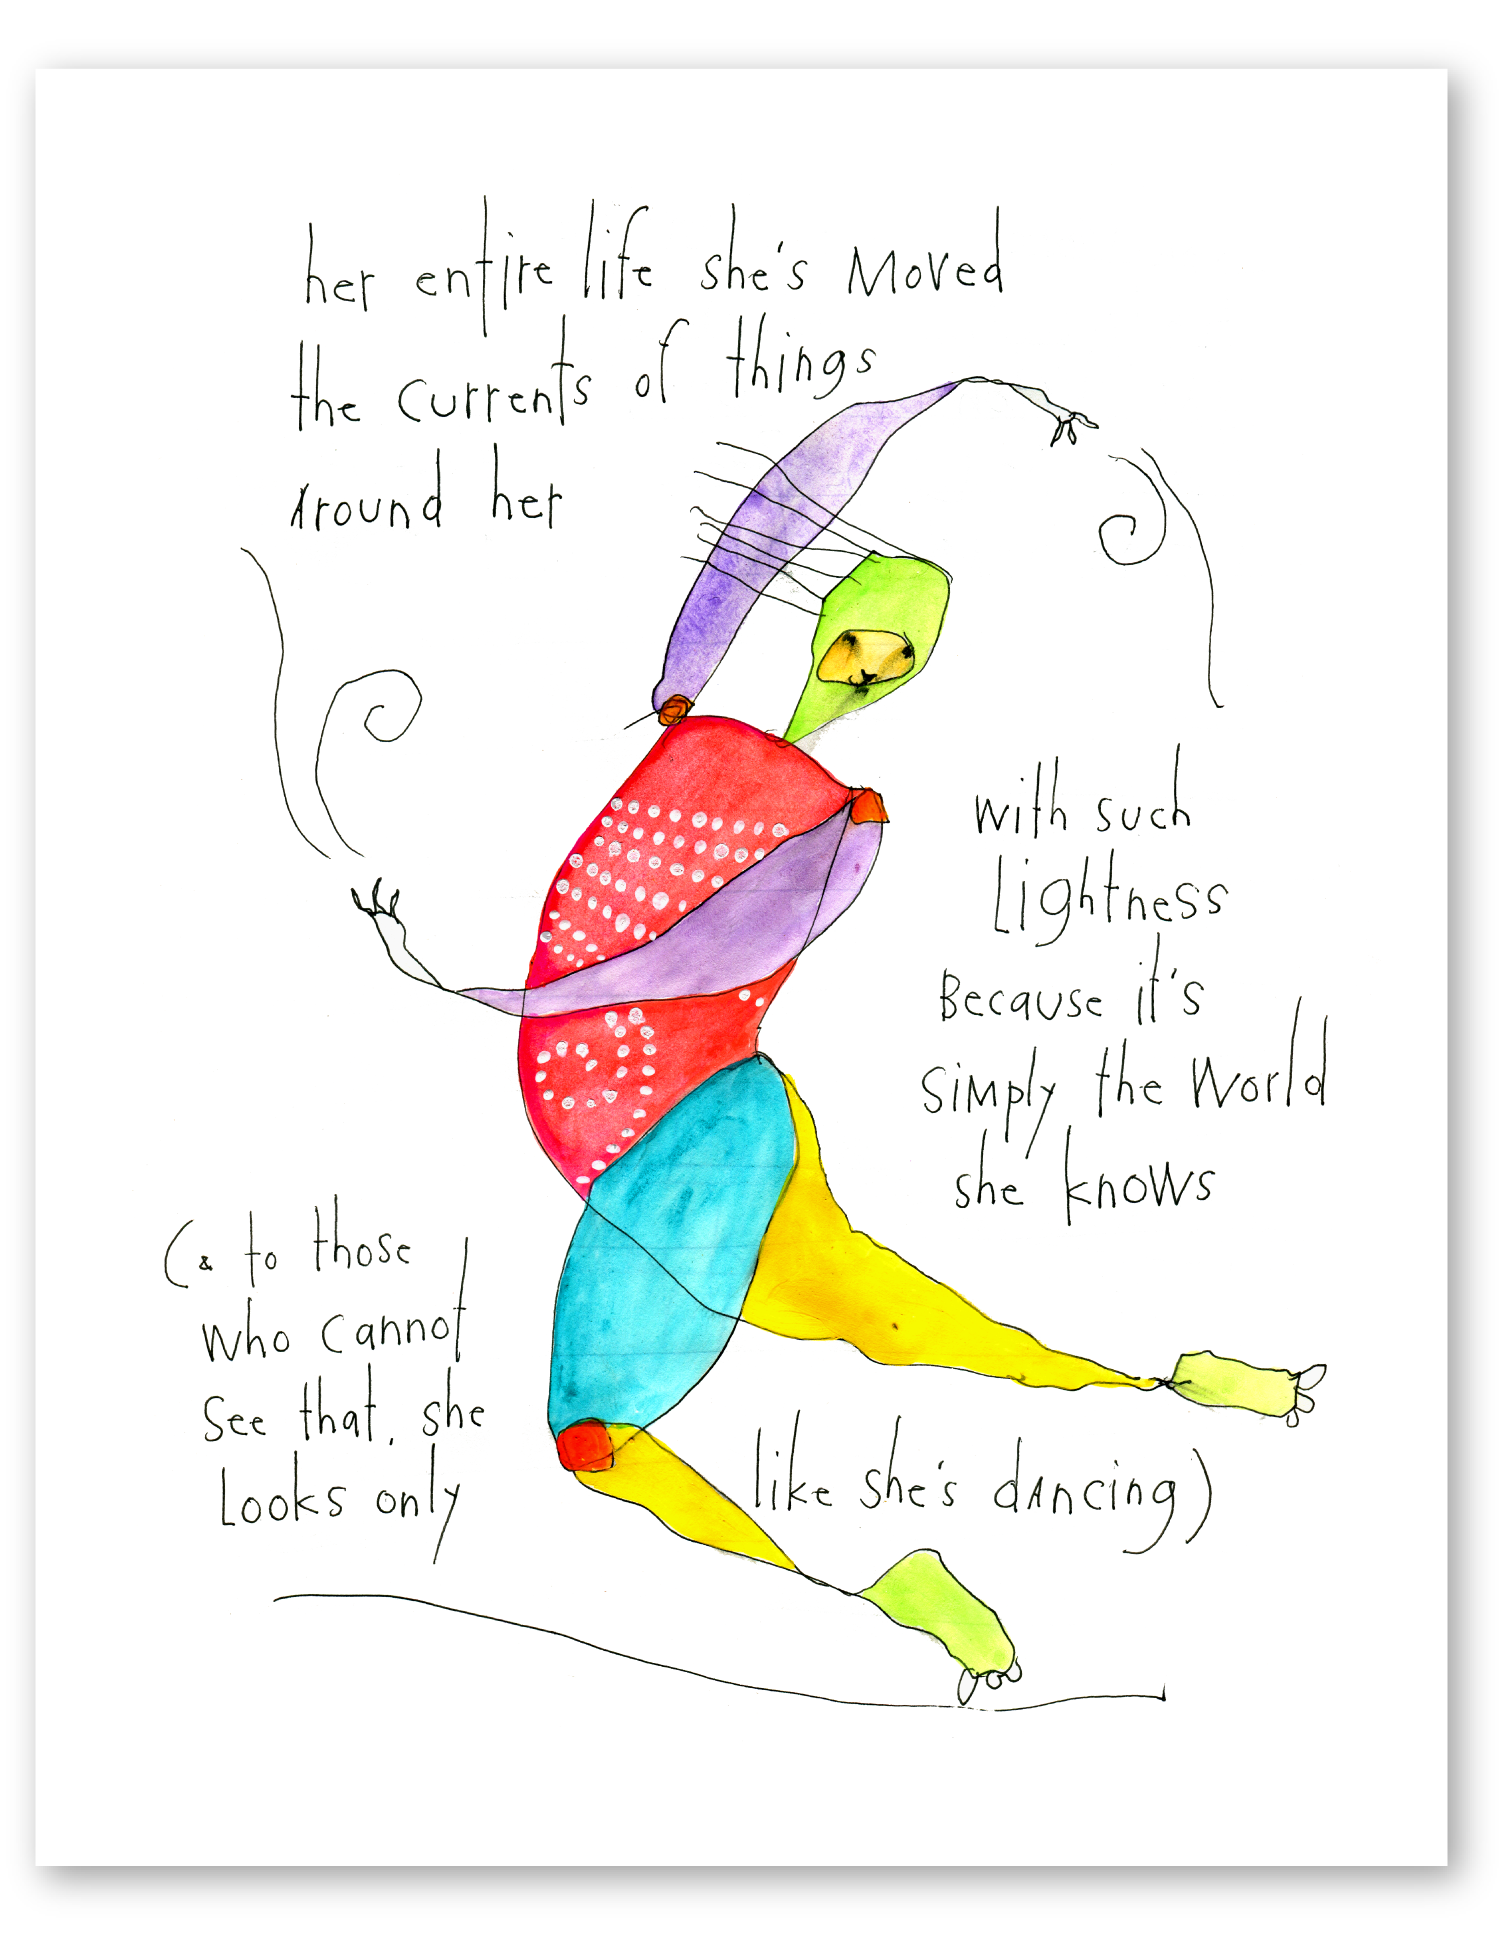 her entire life she's Moved
the currents of things
Around her
with such
Lightness
Because it's
simply the World
she knows
(& to those
who cannot
see that, she
Looks only
like she's dAncing)